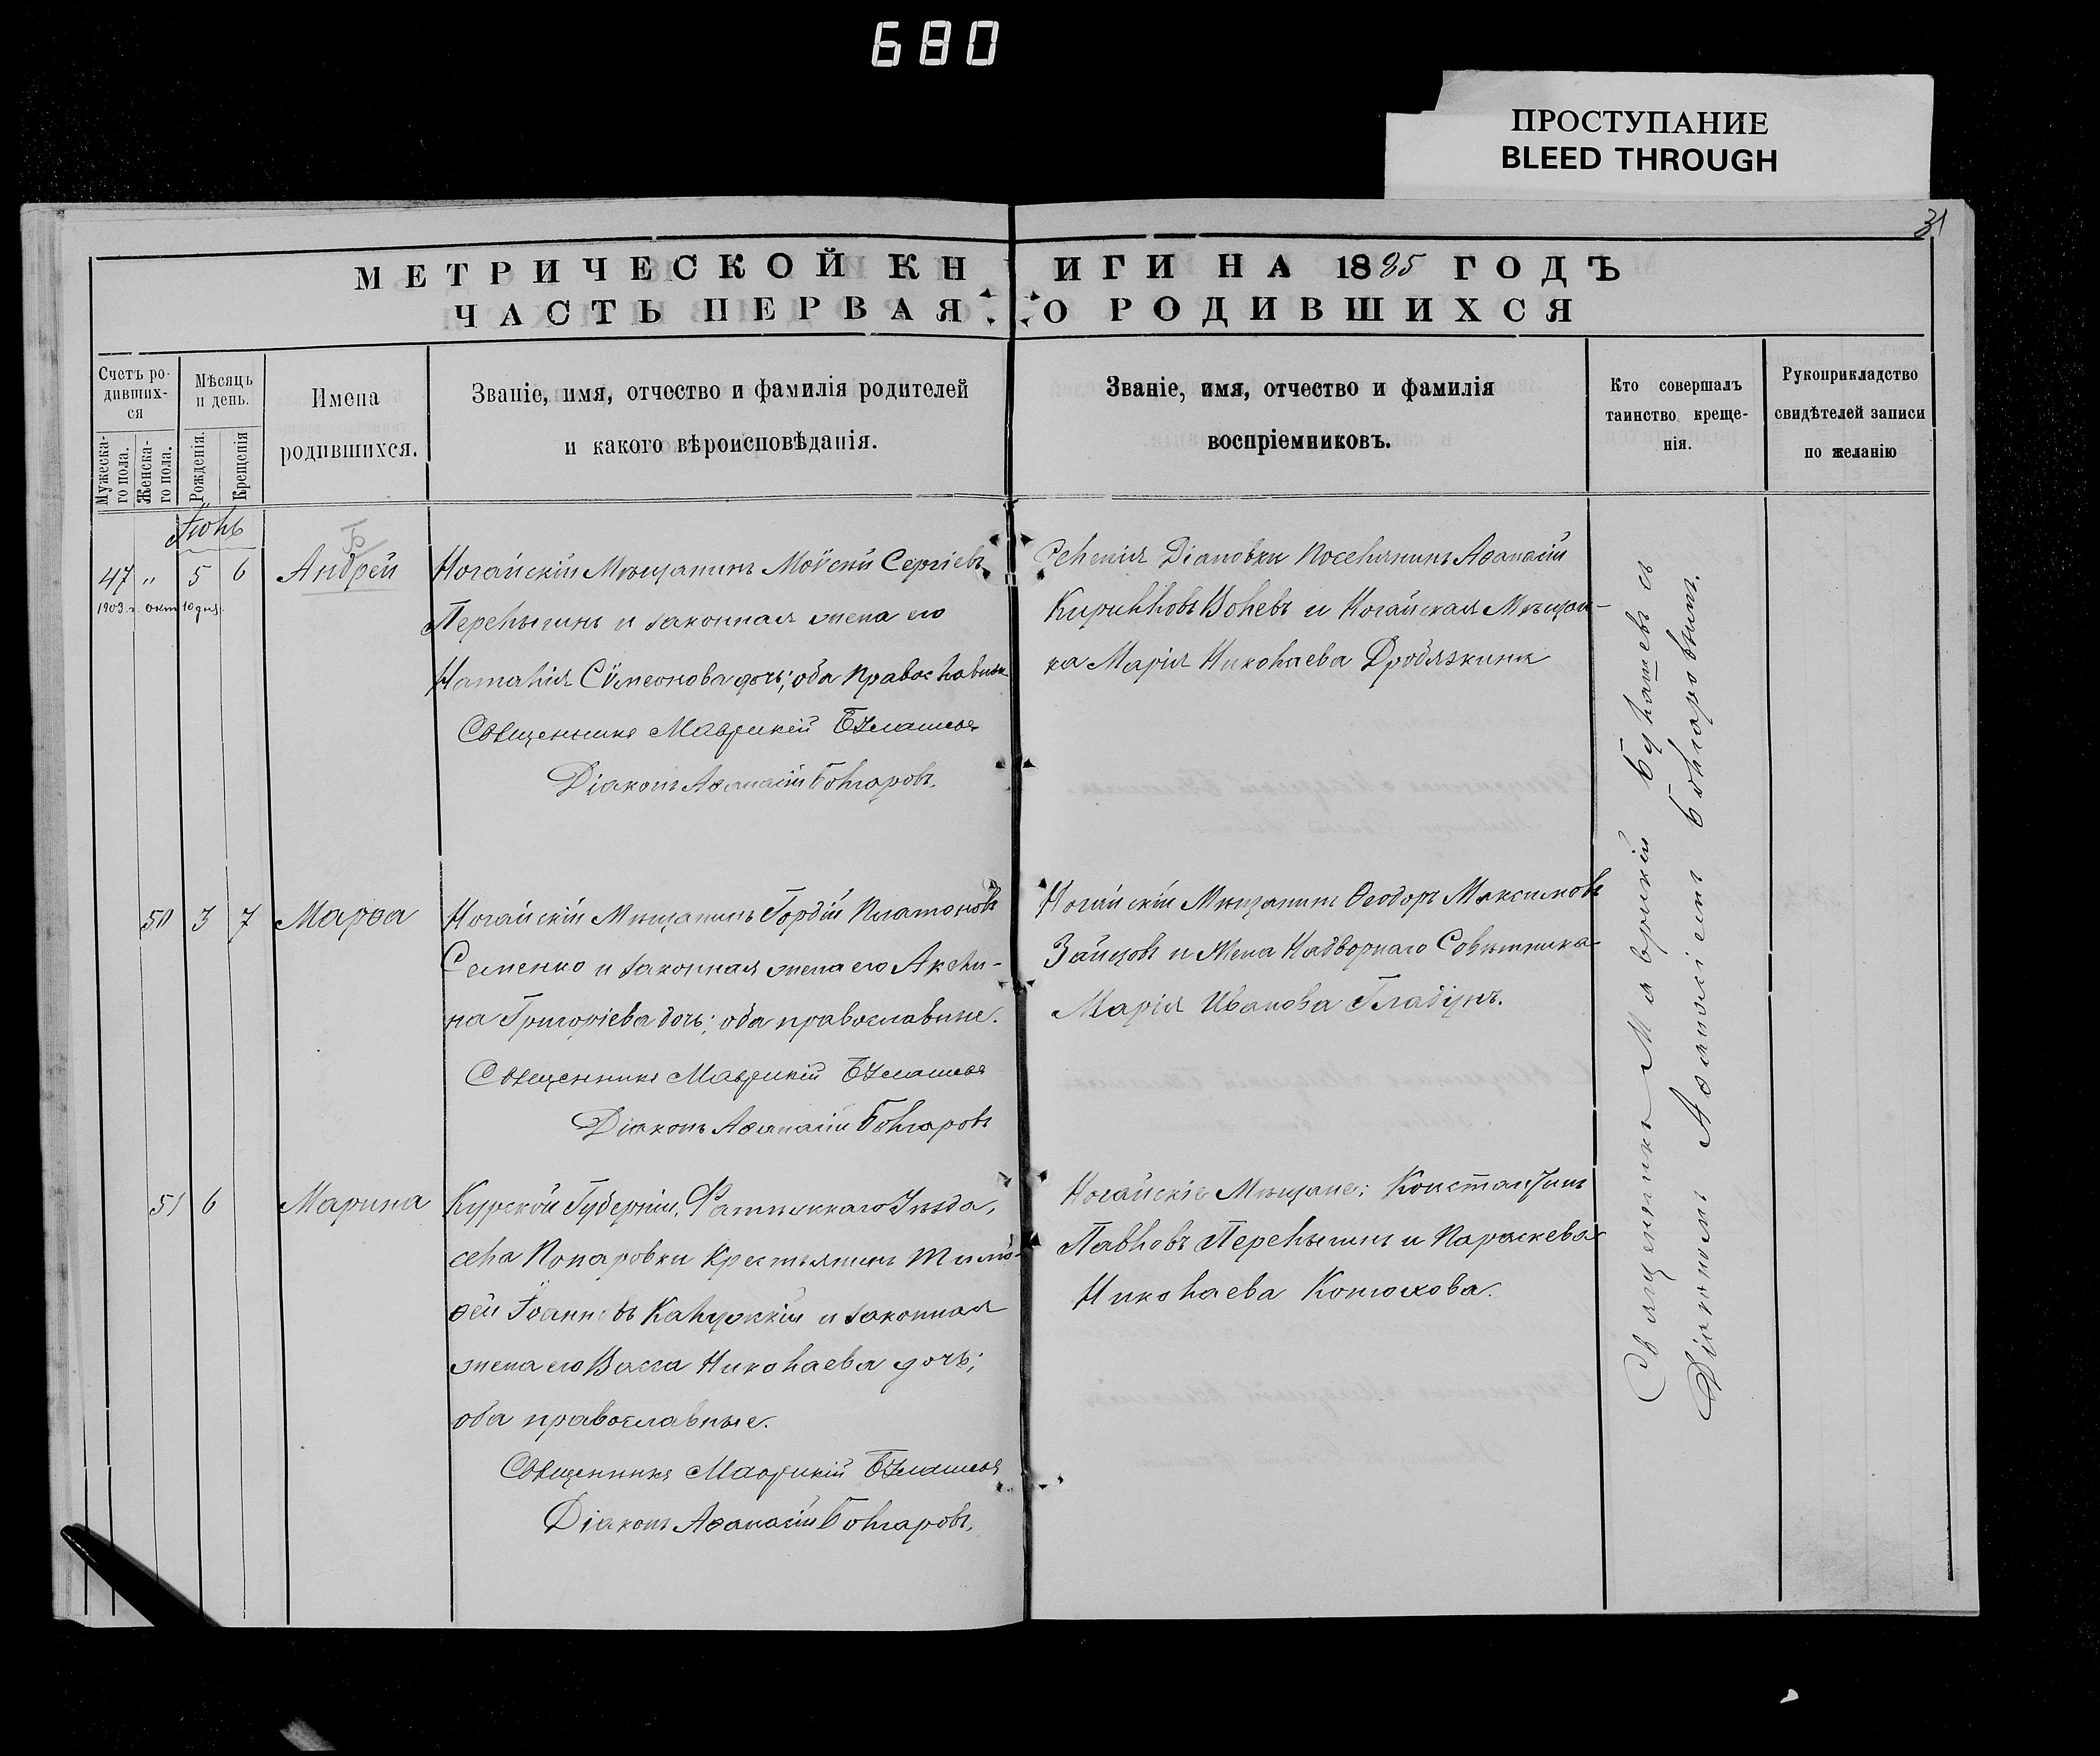 680
ПРОСТУПАНИЕ
BLEED THROUGH
31
МЕТРИЧЕСКОЙ КНИГИ НА 1885 ГОДЪ
ЧАСТЬ ПЕРВАЯ О РОДИВШИХСЯ
Счетъ ро-
дивших-
ся
Мужеска-
го пола.
Женска-
го пола.
Мѣсяцъ
и день.
Рожденія.
Крещенія
Имена
родившихся.
Званіе, имя, отчество и фамилія родителей
и какого вѣроисповѣданія.
Званіе, имя, отчество и фамилія
воспріемниковъ.
Кто совершалъ
таинство креще-
нія.
Рукоприкладство
свидѣтелей записи
по желанію
Іюнь
47 " 5 6 Андрей
1903 г. окт 10 дня.
Ногайскій Мѣщанинъ Мойсей Сергіевъ
Перелыгинъ и законная жена его
Наталія Сѵмеонова дочь; оба православные
Священникъ Маврикій Булашевъ
Діаконъ Аѳанасій Болгаровъ.
Селенія Діановки Поселянинъ Аѳанасій
Кирилловъ Волевъ и Ногайская Мѣщан-
ка Марія Николаева Дробязкина
50 3 7 Марѳа
Ногайскій Мѣщанинъ Гордій Платоновъ
Семенко и законная жена его Акели-
на Григоріева дочь; оба православные.
Священникъ Маврикій Булашевъ
Діаконъ Аѳанасій Болгаровъ
Ногайскій Мѣщанинъ Ѳеодоръ Максимовъ
Зайцовъ и Жена Надворнаго Совѣтника
Марія Иванова Гладунъ.
51 6 Марина
Курской Губерніи, Фатежскаго Уѣзда,
села Понаровки Крестьянинъ Тимо-
ѳей Іоанновъ Калужскій и законная
жена его Васса Николаева дочь;
оба православные.
Священникъ Маврикій Булашевъ
Діаконъ Аѳанасій Болгаровъ.
Ногайскіе Мѣщане: Константинъ
Павловъ Перелыгинъ и Параскева
Николаева Конюхова.
Священникъ Маврикій Булашевъ съ
Діакономъ Аѳанасіемъ Болгаровымъ.